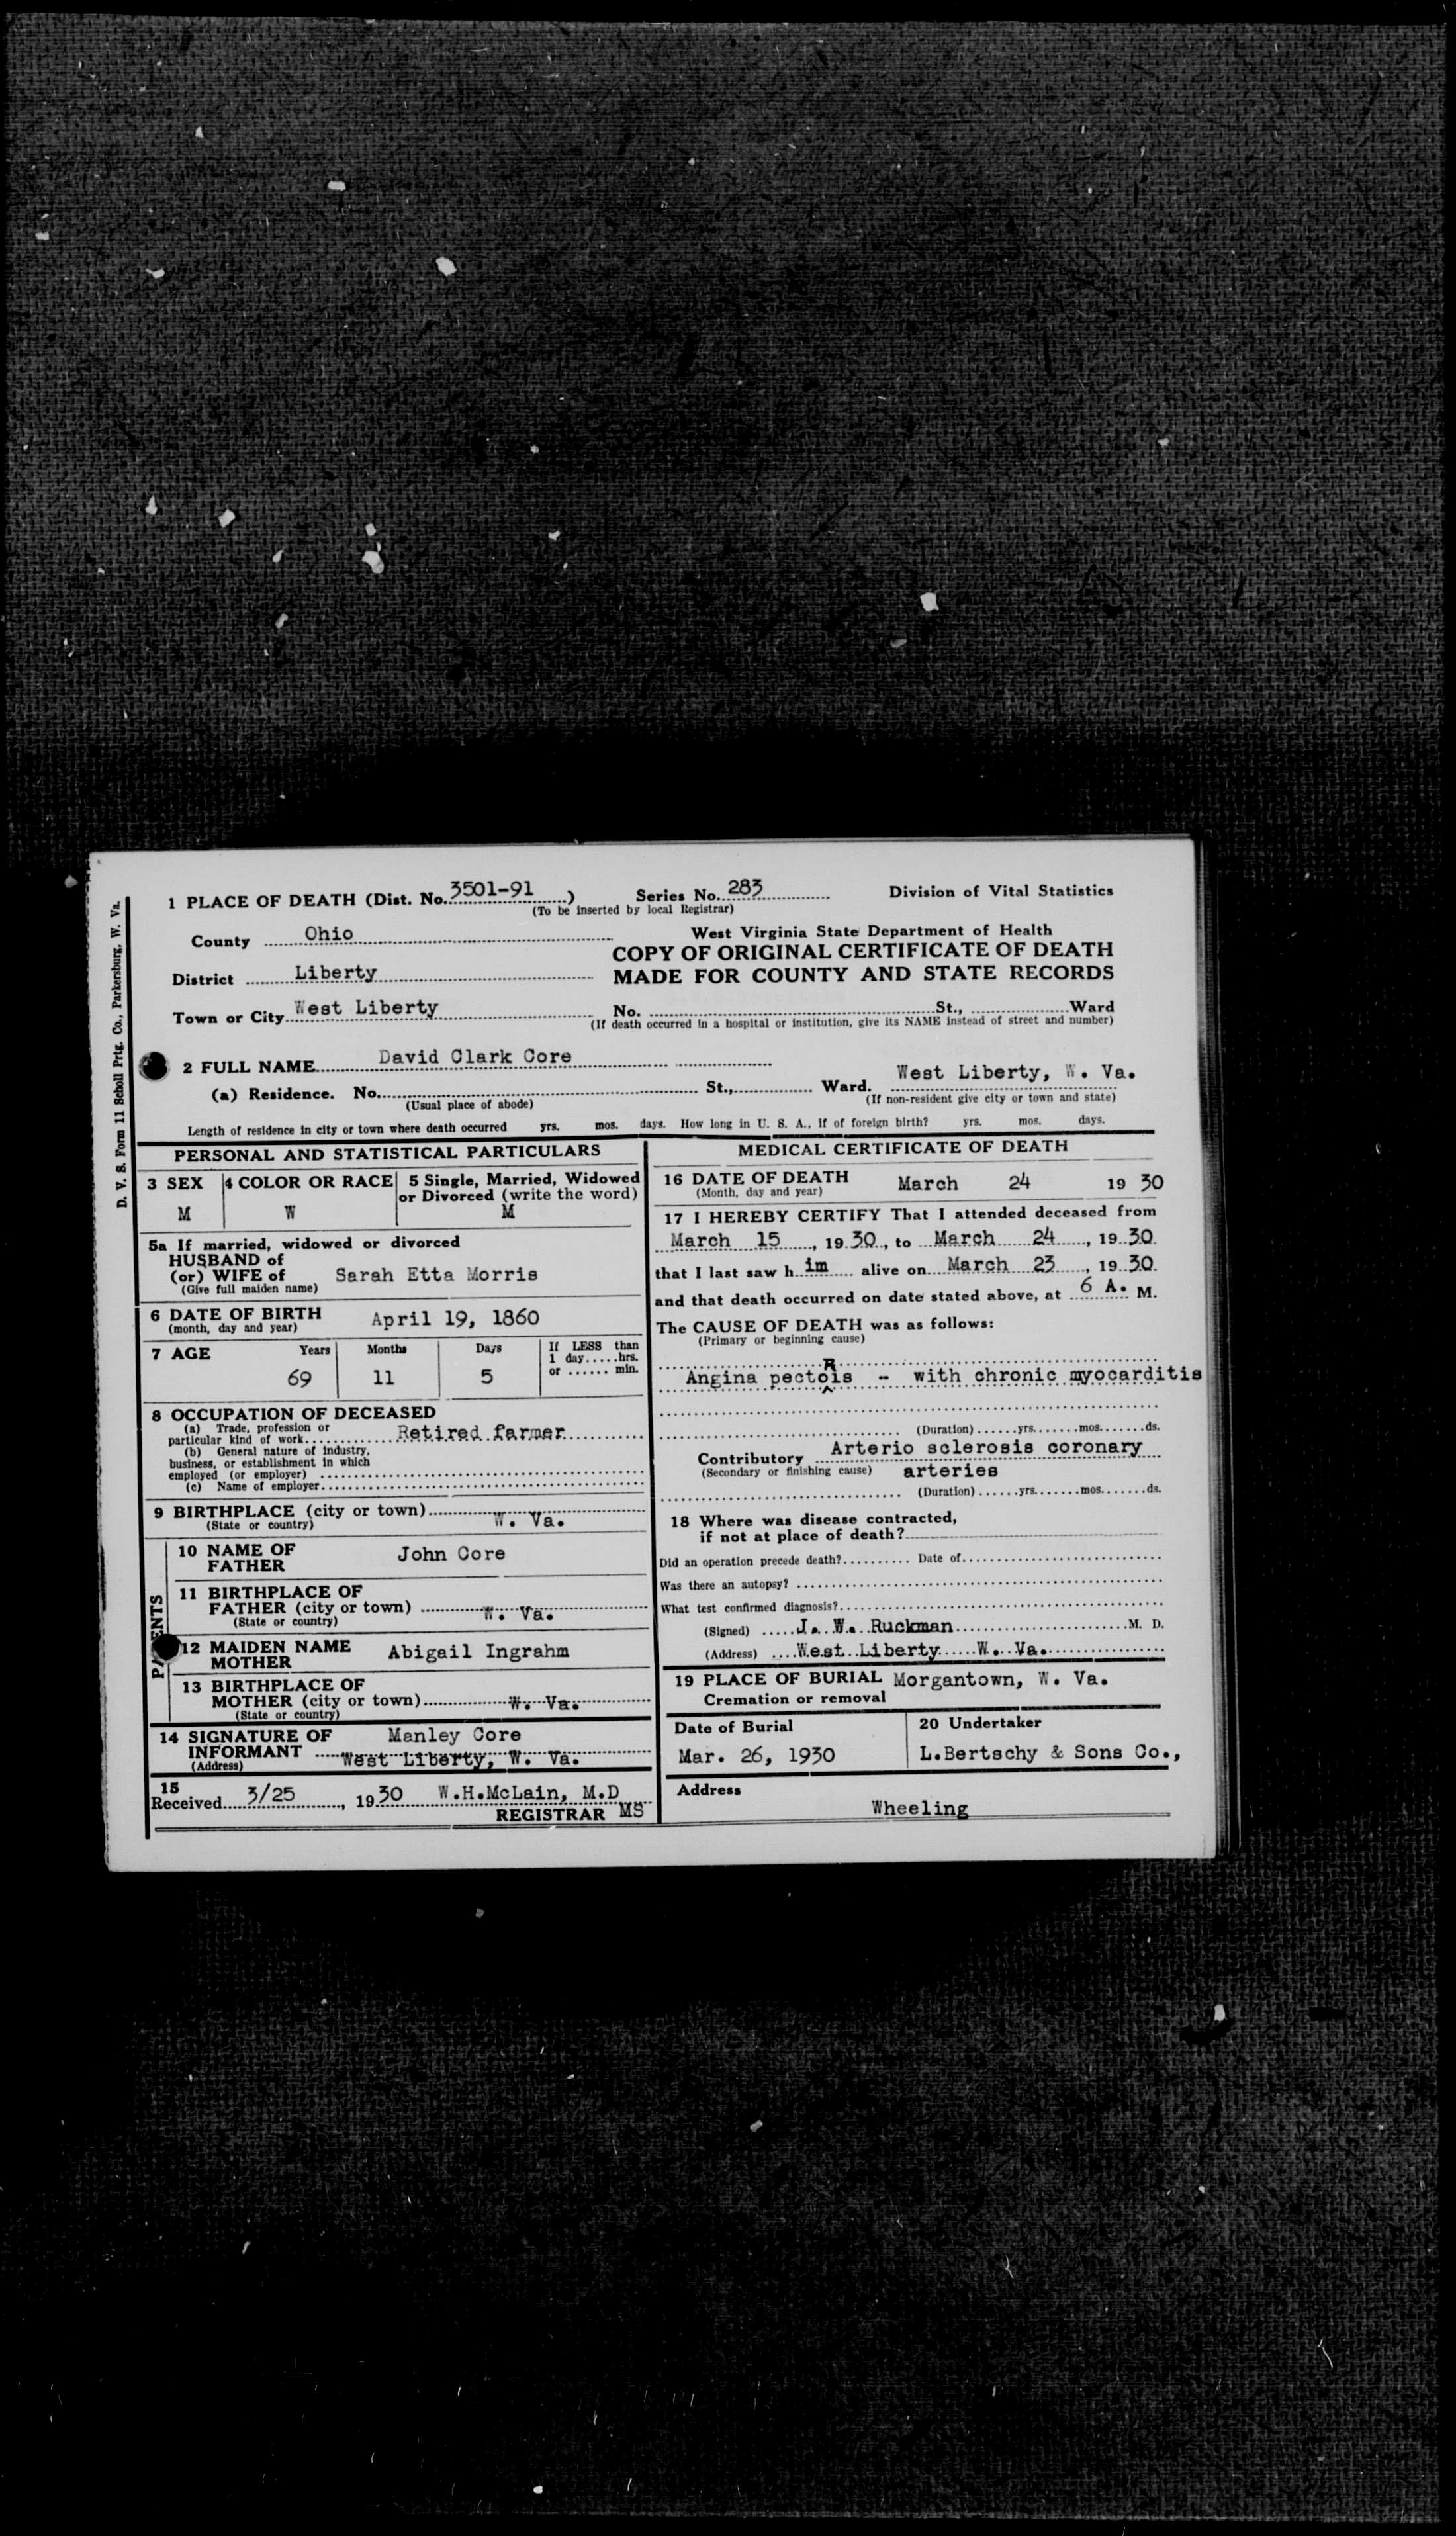 D. V. S. Form 11 Scholl Prtg. Co., Parkersburg, W. Va.
1 PLACE OF DEATH (Dist. No. 3501-91) Series No. 283 Division of Vital Statistics
(To be inserted by local Registrar)
County Ohio West Virginia State Department of Health
COPY OF ORIGINAL CERTIFICATE OF DEATH
District Liberty MADE FOR COUNTY AND STATE RECORDS
Town or City West Liberty No. St., Ward
(If death occurred in a hospital or institution, give its NAME instead of street and number)
2 FULL NAME David Clark Core
(a) Residence. No. St., Ward. West Liberty, W. Va.
(Usual place of abode) (If non-resident give city or town and state)
Length of residence in city or town where death occurred yrs. mos. days. How long in U. S. A., if of foreign birth? yrs. mos. days.
PERSONAL AND STATISTICAL PARTICULARS
3 SEX 4 COLOR OR RACE 5 Single, Married, Widowed
or Divorced (write the word)
M W M
5a If married, widowed or divorced
HUSBAND of
(or) WIFE of Sarah Etta Morris
(Give full maiden name)
6 DATE OF BIRTH April 19, 1860
(month, day and year)
7 AGE Years Months Days If LESS than
1 day.....hrs.
69 11 5 or ...... min.
8 OCCUPATION OF DECEASED
(a) Trade, profession or
particular kind of work Retired farmer
(b) General nature of industry,
business, or establishment in which
employed (or employer)
(c) Name of employer
9 BIRTHPLACE (city or town) W. Va.
(State or country)
PARENTS
10 NAME OF John Core
FATHER
11 BIRTHPLACE OF
FATHER (city or town) W. Va.
(State or country)
12 MAIDEN NAME Abigail Ingrahm
MOTHER
13 BIRTHPLACE OF
MOTHER (city or town) W. Va.
(State or country)
14 SIGNATURE OF Manley Core
INFORMANT West Liberty, W. Va.
(Address)
15
Received 3/25, 1930 W.H.McLain, M.D
REGISTRAR MS
MEDICAL CERTIFICATE OF DEATH
16 DATE OF DEATH March 24 19 30
(Month, day and year)
17 I HEREBY CERTIFY That I attended deceased from
March 15, 19 30, to March 24, 19 30
that I last saw h im alive on March 23, 19 30
and that death occurred on date stated above, at 6 A. M.
The CAUSE OF DEATH was as follows:
(Primary or beginning cause)
R
Angina pectois - with chronic myocarditis
^
(Duration) yrs. mos. ds.
Contributory Arterio sclerosis coronary
(Secondary or finishing cause) arteries
(Duration) yrs. mos. ds.
18 Where was disease contracted,
if not at place of death?
Did an operation precede death? Date of
Was there an autopsy?
What test confirmed diagnosis?
(Signed) J. W. Ruckman M. D.
(Address) West Liberty W. Va.
19 PLACE OF BURIAL Morgantown, W. Va.
Cremation or removal
Date of Burial 20 Undertaker
Mar. 26, 1930 L.Bertschy & Sons Co.,
Address
Wheeling